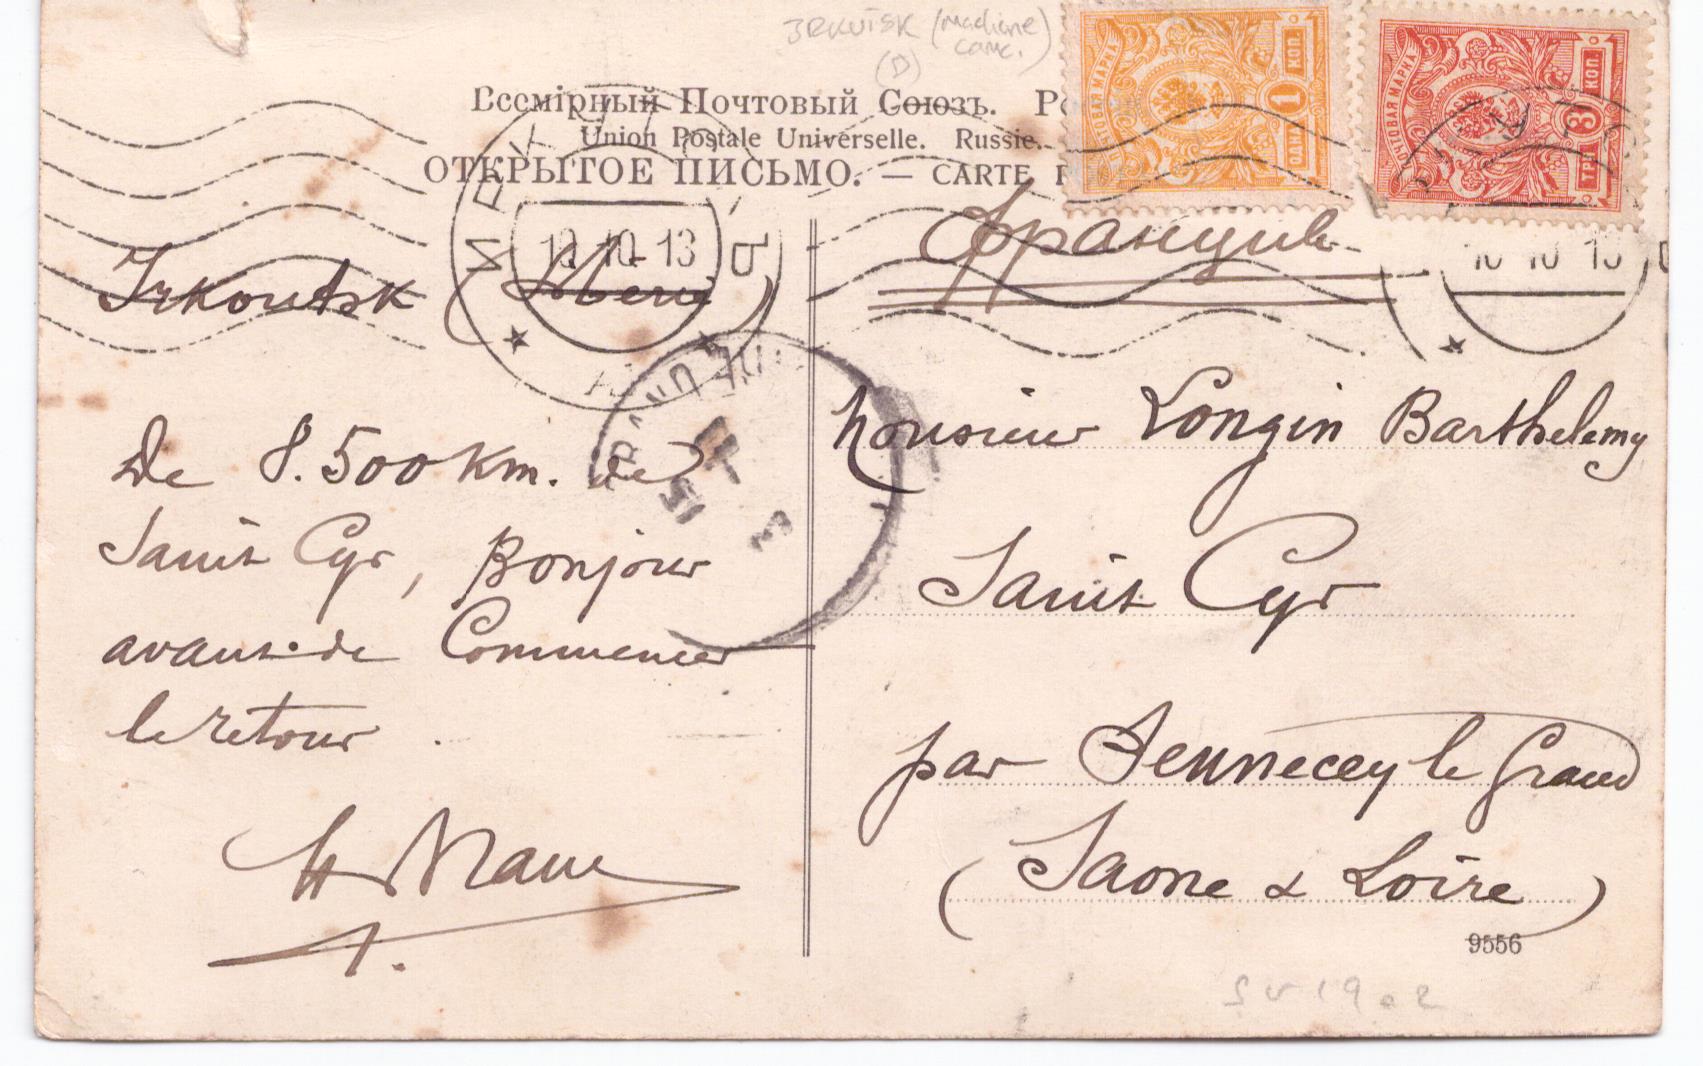 JRKUTSK (machine)
canc.)
(D)
Всемірный Почтовый Союзъ.
Union Postale Universelle. Russie.
ОТКРЫТОЕ ПИСЬМО. — CARTE
ПОЧТОВАЯ МАРКА
1
КОП.
ОДНА
ПОЧТОВАЯ МАРКА
3
КОП.
ТРИ
ИРКУТ
10·13
10 10 13
Irkoutsk
Франция
De 8.500 Km. de
Saint Cyr, Bonjour
avant de Commencer
le retour
Monsieur Longin Barthelemy
Saint Cyr
par Sennecey le Grand
(Saone & Loire)
9556